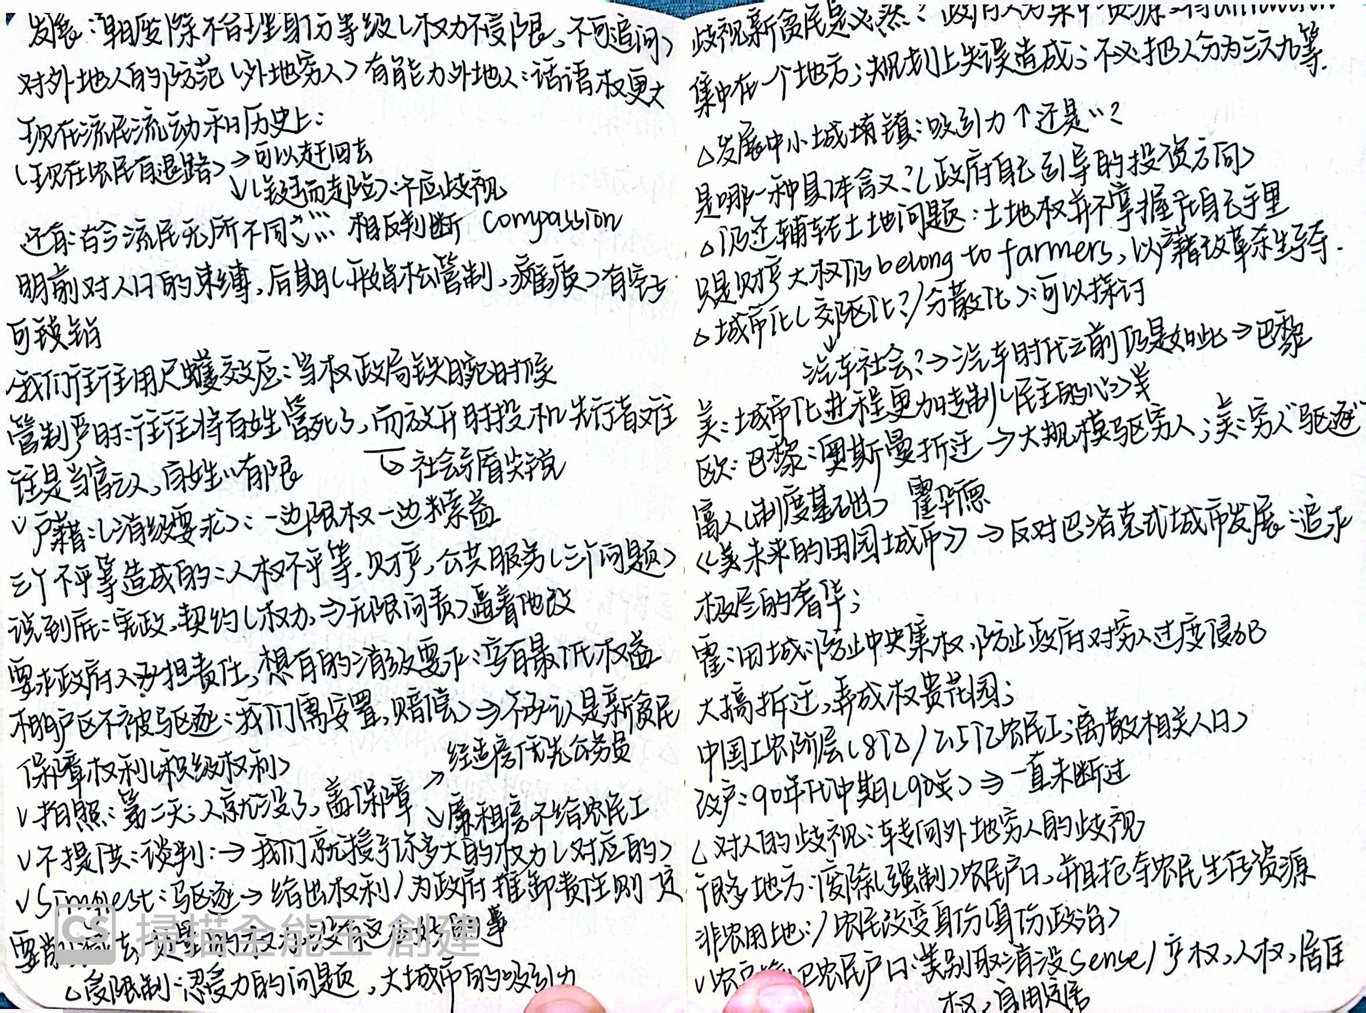 发展：制度 废除不合理身份等级（权力不受限，不可追问）
对外地人的防范（外地穷人）有能力外地人：话语权更大
现在流民流动和历史上：
（现在农民有退路）→可以赶回去
↓（铤而走险）：不应歧视
还有：古今流民无所不同 相反判断 Compassion
明前对人口的束缚，后期（开始松管制，瘫痪）有空子
可钻
我们往往用尺蠖效应：当权政局铁腕时候
管制严时：往往将百姓管死了，而放开时投机先行者往
往是当官之人，百姓''有限
↳社会矛盾尖锐
√户籍：（消极要求）：一边限权一边求索益
三个不平等造成的：人权不平等，财产，公共服务（三个问题）
说到底：宪政，契约（权力⇒无限问责）逼着他改
要求政府承担责任，想有的消极要求：享有最低权益
棚户区不被驱逐：我们需安置，赔偿⇒不承认是新贫民
保障权利（积极权利）
经适房优先公务员
√拍照：第二天：人就没了，高保障
↘廉租房不给农民工
√不提供：谈判：→我们就授予你多大的权力（对应的）
√Simplest：驱逐→给出权利/为政府推卸责任则
CS 掃描全能王 創建
△受限制：忍受力的问题，大城市的吸引力
歧视新贫民是必然？
集中在一个地方；规划上失误造成；不必把人分为三六九等.
△发展中小城填镇：吸引力↑还是''？
是哪一种具体含义？（政府自己引导的投资方向）
△仍迁辅转土地问题：土地权并不掌握在自己手里
只是财产大权仍belong to farmers，以户籍改革杀生予夺.
△城市化（郊区化？/分散化）：可以探讨
汽车社会？→汽车时代之前仍是如此⇒巴黎
美：城市化进程更加遵制（民主的）美
欧：巴黎：奥斯曼拆迁→大规模驱穷人；美：穷人"驱逐"
富人（制度基础） 霍华德
《美未来的田园城市》→反对巴洛克式城市发展：追求
极尽的奢华；
霍：田城：防止中央集权，防止政府对穷人过度侵犯
大搞拆迁，弄成权贵花园；
中国工农阶层（8亿/2.5亿农民工：离散相关人口）
改户：90年代中期（90年）⇒一直未断过
△对人的歧视：转向外地穷人的歧视
很多地方：废除（强制）农民户口，并抢夺农民生存资源
非农用地：/农民改变身份（身份政治）
农民户口：类别取消没sense/产权，人权，居住
权，高用房居